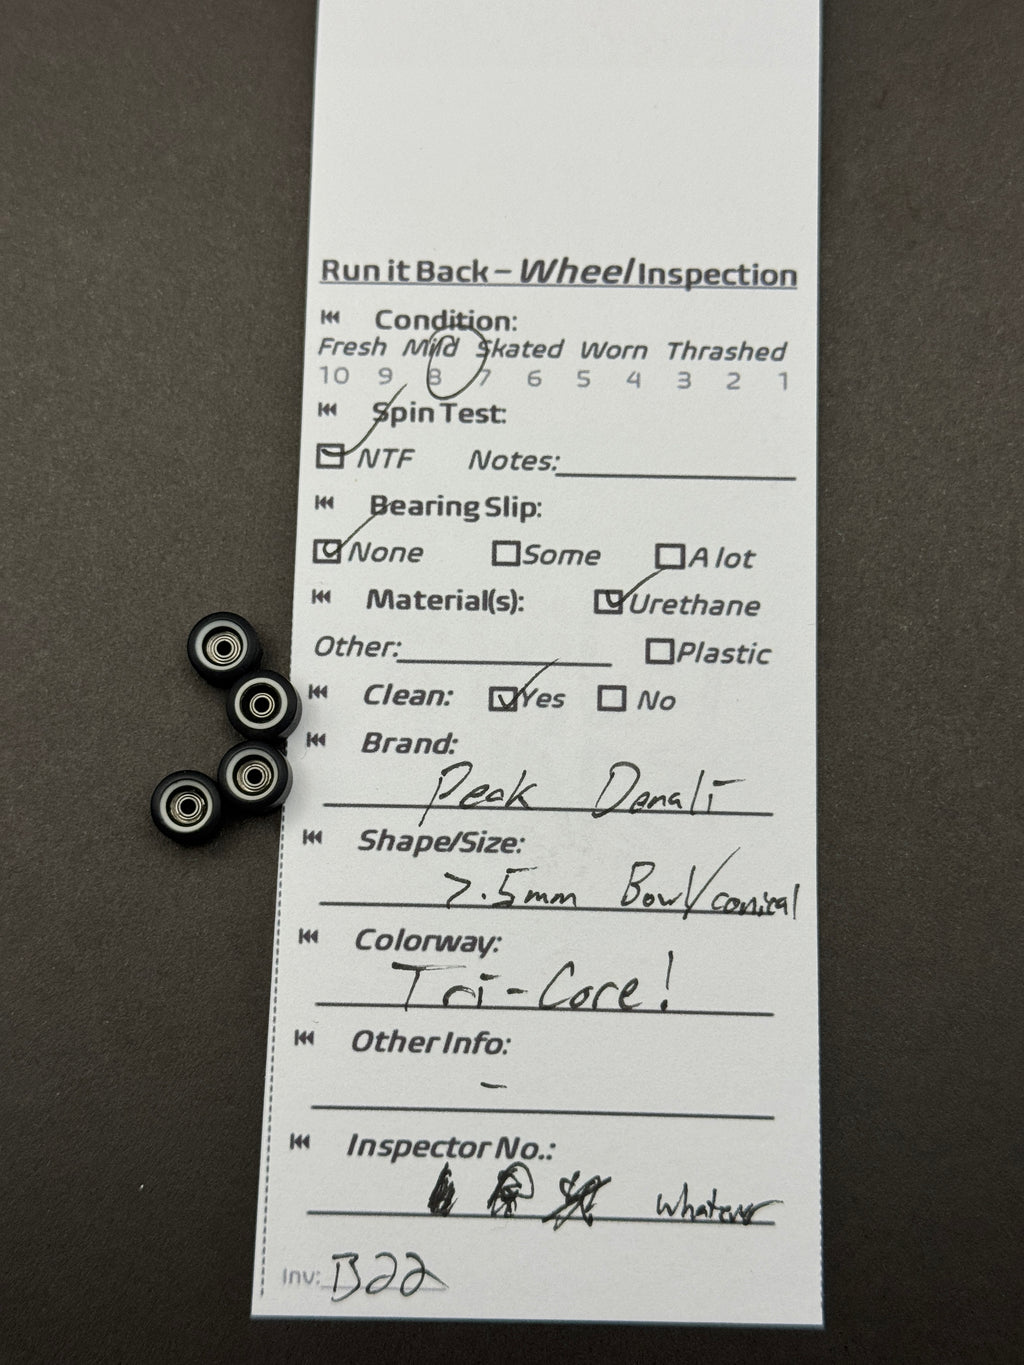 Run it Back – Wheel Inspection
Condition:
Fresh Mild Skated Worn Thrashed
10 9 8 7 6 5 4 3 2 1
Spin Test:
NTF Notes:
Bearing Slip:
None Some A lot
Material(s): Urethane
Other: Plastic
Clean: Yes No
Brand:
Peak Denali
Shape/Size:
7.5mm Bowl/conical
Colorway:
Tri-Core!
Other Info:
-
Inspector No.:
whatever
Inv: B22